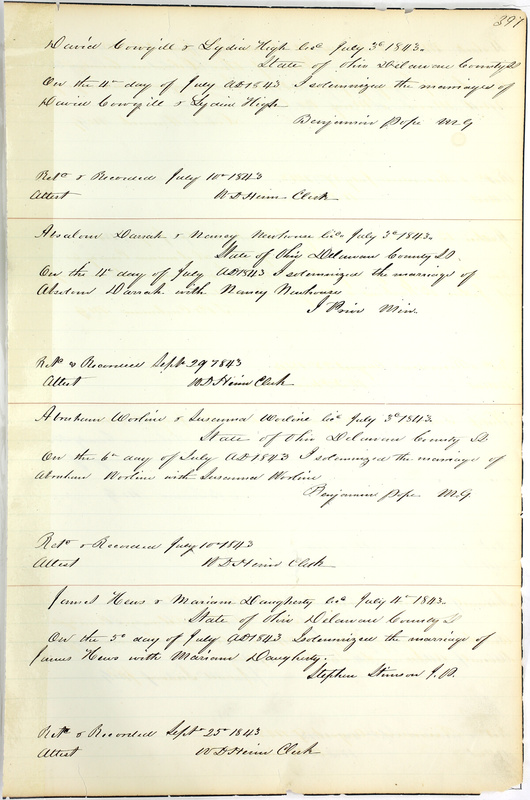 397
David Cowgill & Lydia High Lic July 3d 1843.
State of Ohio Delaware County SS
On the 4th day of July AD 1843 I solemnized the marriages of
David Cowgill & Lydia High
Benjamin Pope M G
Retd & Recorded July 10th 1843
Attest W D Heim Clerk
Absalom Darrah & Nancy Newhouse Lic July 3d 1843.
State of Ohio Delaware County SS.
On the 4th day of July AD 1843 I solemnized the marriage of
Absalom Darrah with Nancy Newhouse
J Prior Min.
Retd & Recorded Sept 29 1843
Attest W D Heim Clerk
Abraham Worline & Susanna Worline Lic July 3d 1843
State of Ohio Delaware County SS.
On the 6th day of July AD 1843 I solemnized the marriage of
Abraham Worline with Susanna Worline
Benjamin Pope M.G
Retd & Recorded July 10th 1843
Attest W D Heim Clerk
James Hews & Mariam Daugherty Lic July 4th 1843.
State of Ohio Delaware County SS
On the 5th day of July AD 1843 Solemnized the marriage of
James Hews with Mariam Daugherty.
Stephen Stimson J.P.
Retd & Recorded Sept 25th 1843
Attest W D Heim Clerk